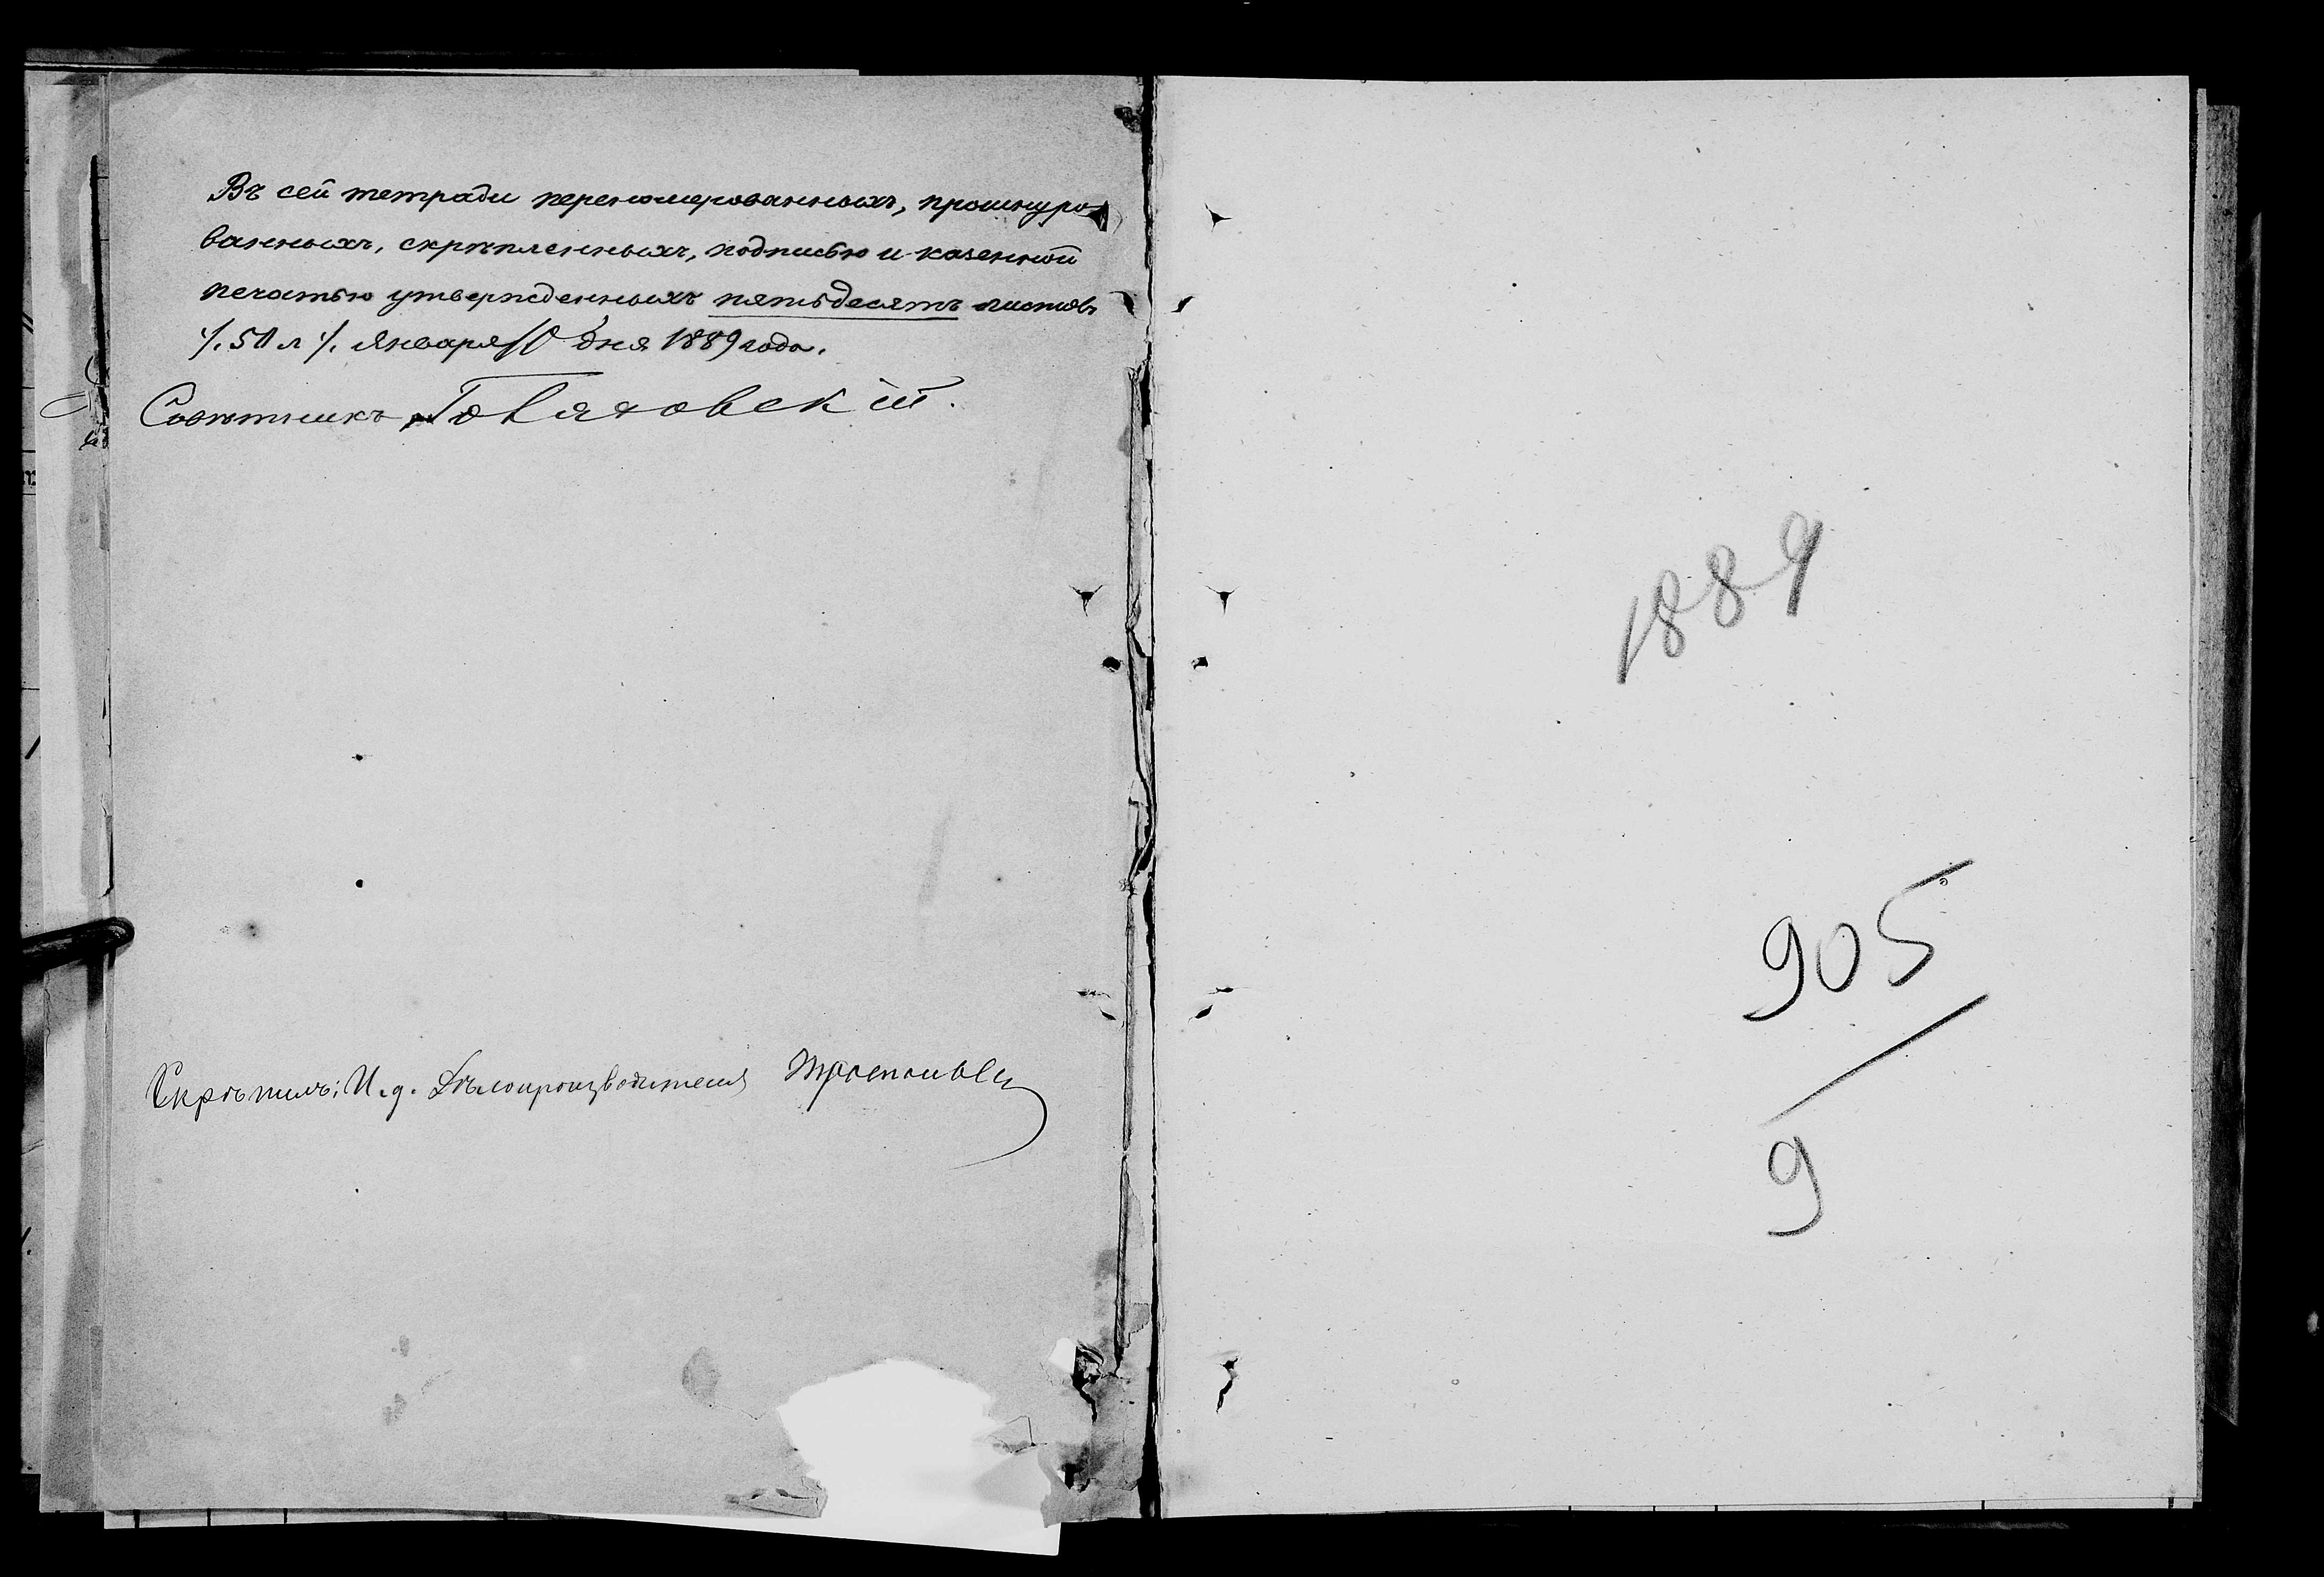 Въ сей тетради перенумерованныхъ, прошнуро-
ванныхъ, скрѣпленныхъ, подписью и казенной
печатью утвержденныхъ пятьдесятъ листовъ
ꝟ. 50 л ꝟ. Января 10 дня 1889 года.
Совѣтникъ
Скрѣпилъ: И. д. Дѣлопроизводителя
1889
905
9